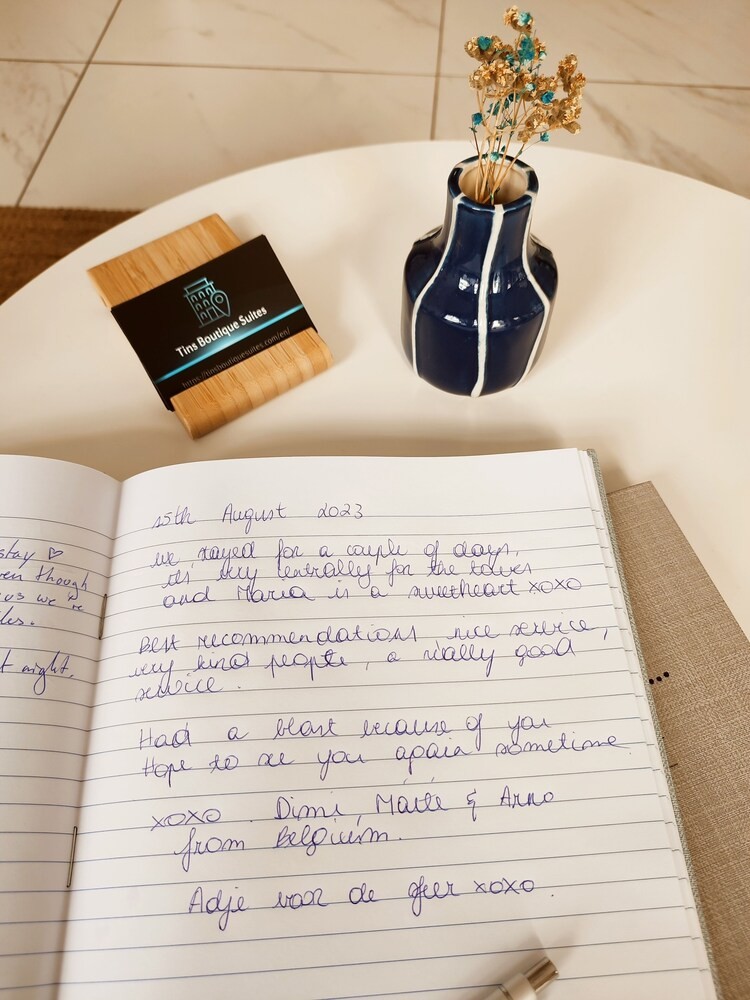 Tins Boutique Suites
https://tinsboutiquesuites.com/en/
stay ♡
though
us we're
night.
15th August 2023
we stayed for a couple of days,
its very centrally for the
and Maria is a sweetheart xoxo
Best recommendations, nice service,
very kind people, a really good
service.
Had a blast because of you
Hope to see you again sometime
xoxo Dimi, & Arno
from Belgium.
Adje voor de sfeer xoxo.